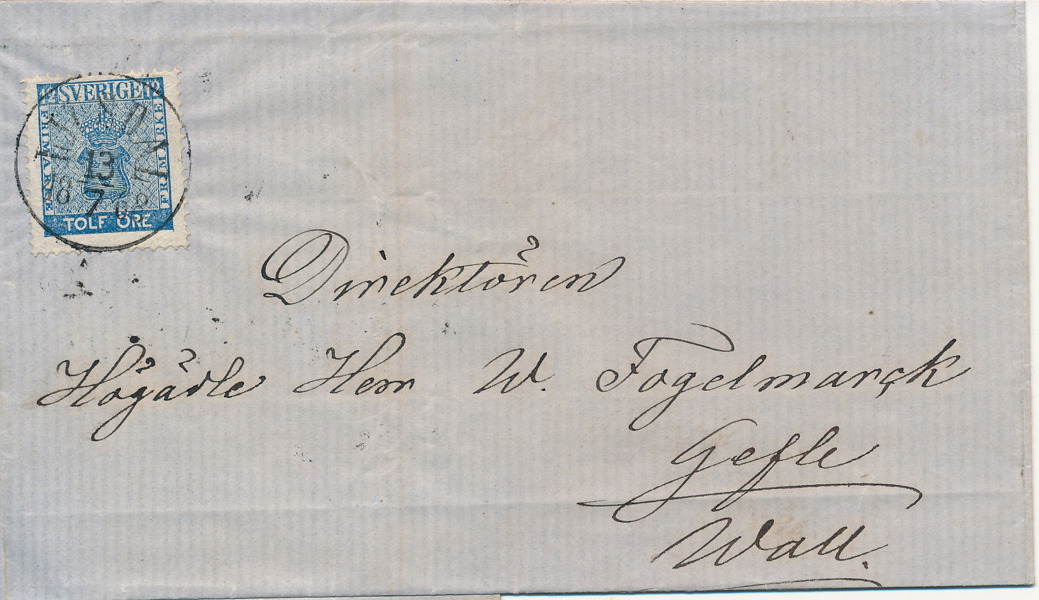 12 SVERIGE 12
FRIMÄRKE
FRIMÄRKE
TOLF ÖRE
13
7
Direktören
Högädle Herr W. Fogelmarck
Gefle
Wall.